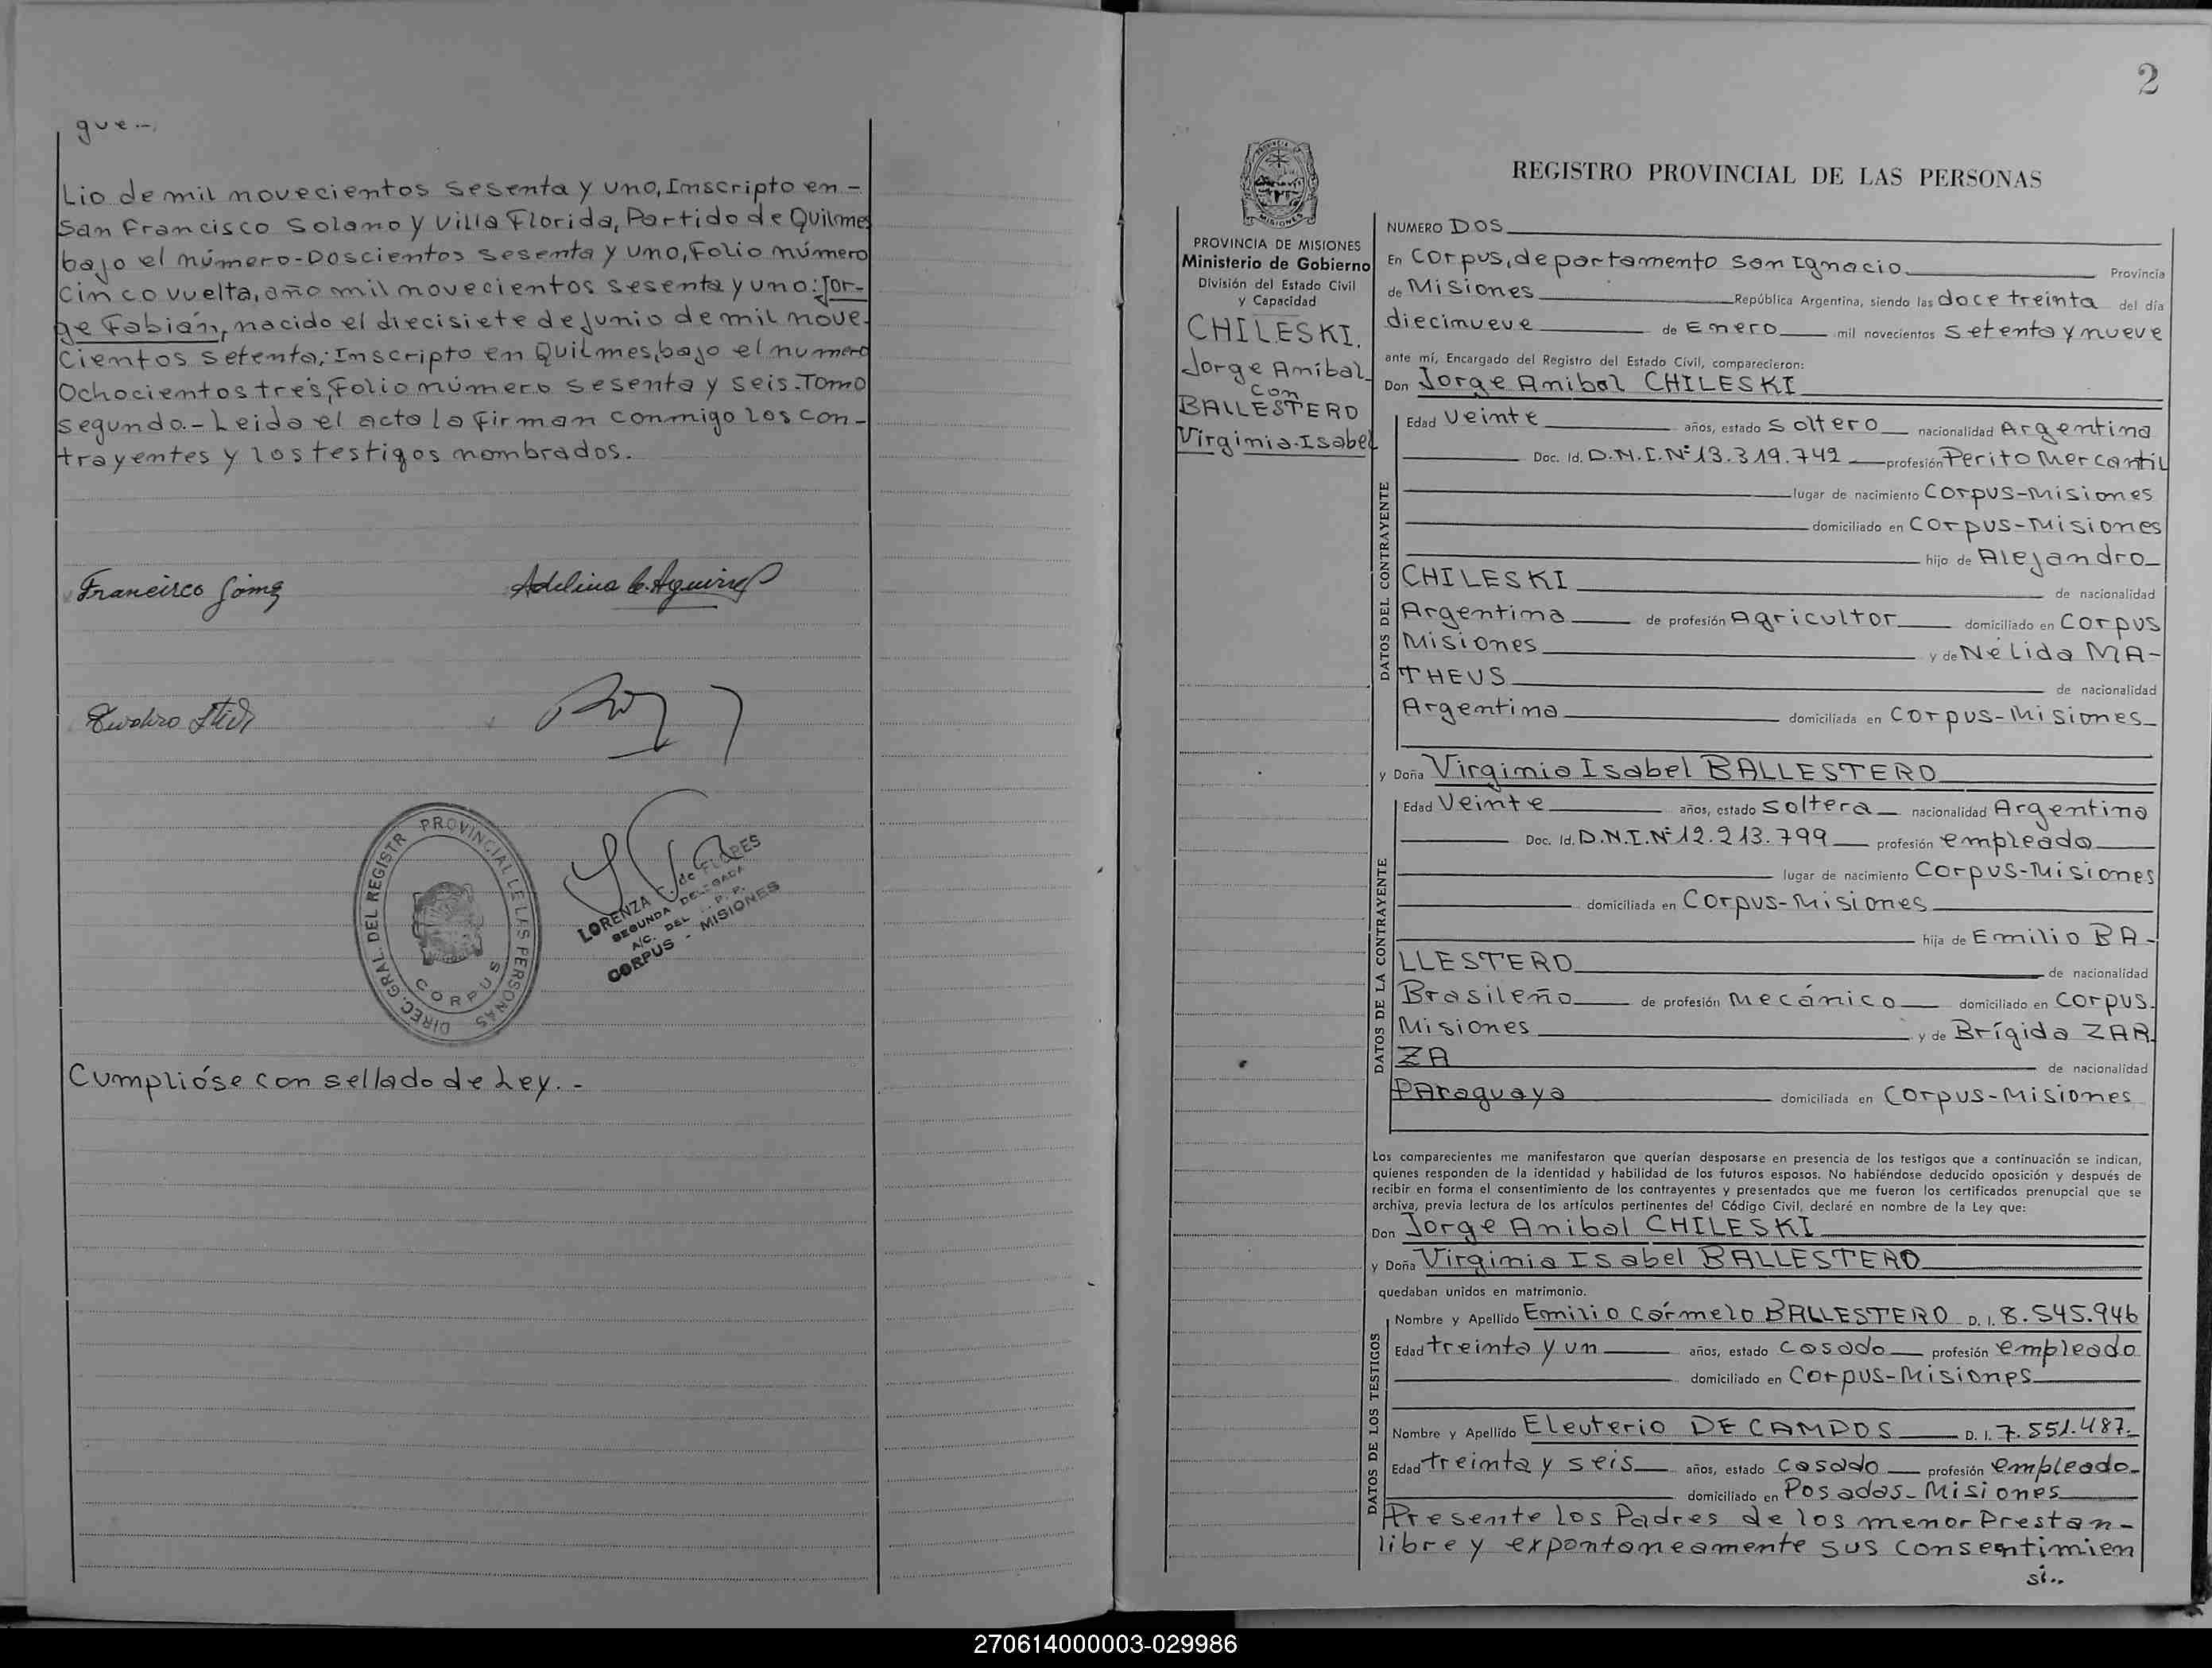 gue--.
Lio de mil novecientos sesenta y uno, Inscripto en-
San Francisco Solano y Villa Florida, Partido de Quilmes
bajo el número-Doscientos sesenta y uno, Folio número
Cinco vuelta, año mil novecientos sesenta y uno: Jor-
ge Fabián, nacido el diecisiete de junio de mil nove-
cientos setenta; Inscripto en Quilmes, bajo el numero
Ochocientos tres, Folio número sesenta y seis. Tomo
segundo.- Leida el acta la firman conmigo los con-
trayentes y los testigos nombrados.
Francisco Gómez
Adelina C. Aguirre
DIREC. GRAL. DEL REGISTR PROVINCIAL DE LAS PERSONAS
CORPUS
LORENZA C. de FLORES
SEGUNDA DELEGADA
A/C. DEL . . P. P.
CORPUS - MISIONES
Cumplióse con sellado de Ley. -
2
REGISTRO PROVINCIAL DE LAS PERSONAS
PROVINCIA DE MISIONES
Ministerio de Gobierno
División del Estado Civil
y Capacidad
CHILESKI.
Jorge Anibal
con
BALLESTERO
Virginia Isabel
NUMERO DOS
En Corpus, departamento San Ignacio Provincia
de Misiones República Argentina, siendo las doce treinta del día
diecinueve de Enero mil novecientos setenta y nueve
ante mí, Encargado del Registro del Estado Civil, comparecieron:
Don Jorge Anibal CHILESKI
DATOS DEL CONTRAYENTE
Edad Veinte años, estado Soltero nacionalidad Argentina
Doc. Id. D.N.I. Nº 13.319.742 profesión Perito Mercantil
lugar de nacimiento Corpus-Misiones
domiciliado en Corpus-Misiones
hijo de Alejandro
CHILESKI de nacionalidad
Argentina de profesión Agricultor domiciliado en Corpus
Misiones y de Nélida MA-
THEUS de nacionalidad
Argentina domiciliada en Corpus-Misiones
y Doña Virginia Isabel BALLESTERO
DATOS DE LA CONTRAYENTE
Edad Veinte años, estado Soltera nacionalidad Argentina
Doc. Id. D.N.I. Nº 12.213.799 profesión empleada
lugar de nacimiento Corpus-Misiones
domiciliada en Corpus-Misiones
hija de Emilio BA-
LLESTERO de nacionalidad
Brasileño de profesión Mecánico domiciliado en Corpus.
Misiones y de Brígida ZAR
ZA de nacionalidad
PAraguaya domiciliada en Corpus-Misiones
Los comparecientes me manifestaron que querían desposarse en presencia de los testigos que a continuación se indican,
quienes responden de la identidad y habilidad de los futuros esposos. No habiéndose deducido oposición y después de
recibir en forma el consentimiento de los contrayentes y presentados que me fueron los certificados prenupcial que se
archiva, previa lectura de los artículos pertinentes del Código Civil, declaré en nombre de la Ley que:
Don Jorge Anibal CHILESKI
y Doña Virginia Isabel BALLESTERO
quedaban unidos en matrimonio.
DATOS DE LOS TESTIGOS
Nombre y Apellido Emilio Cármelo BALLESTERO D. I. 8.545.946
Edad treinta y un años, estado casado profesión empleado
domiciliado en Corpus-Misiones
Nombre y Apellido Eleuterio DE CAMPOS D. I. 7.551.487.
Edad treinta y seis años, estado casado profesión empleado
domiciliado en Posadas-Misiones
Presente los Padres de los menor Prestan-
libre y expontaneamente sus consentimien
si..
270614000003-029986